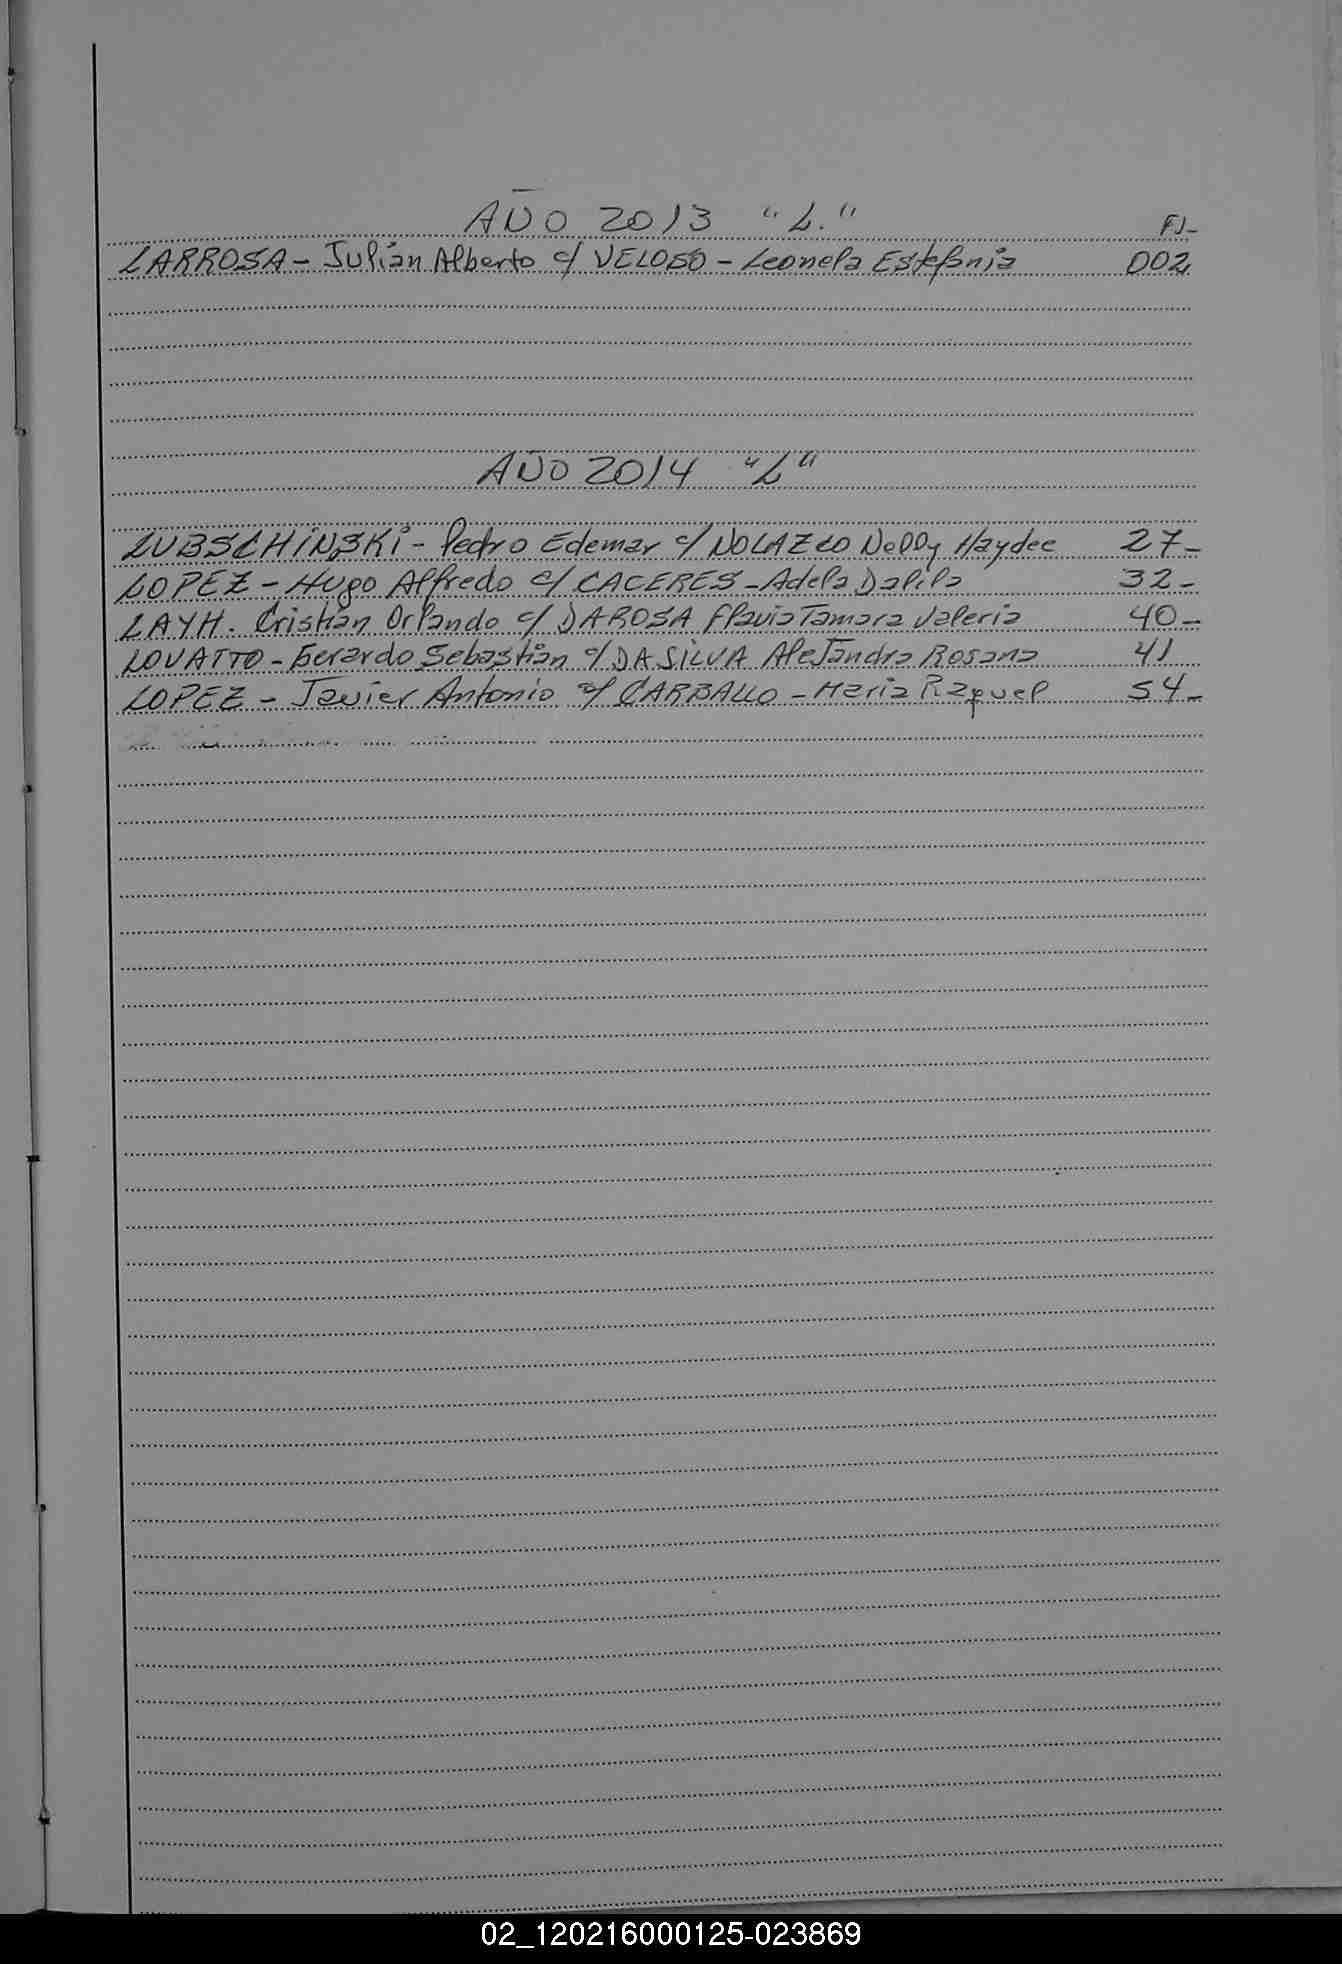 AÑO 2013 "L."
FJ-
LARROSA - Julián Alberto c/ VELOSO - Leonela Estefania 002
AÑO 2014 "L"
LUBSCHINSKI - Pedro Edemar c/ NOLAZCO Nelly Haydee 27-
LOPEZ - Hugo Alfredo c/ CACERES - Adela Dalila 32-
LAYH. Cristian Orlando c/ DAROSA Flavia Tamara Valeria 40-
LOVATTO - Gerardo Sebastián c/ DA SILVA Alejandra Rosana 41
LOPEZ - Javier Antonio c/ CARBALLO - Maria Raquel 54-
02_120216000125-023869